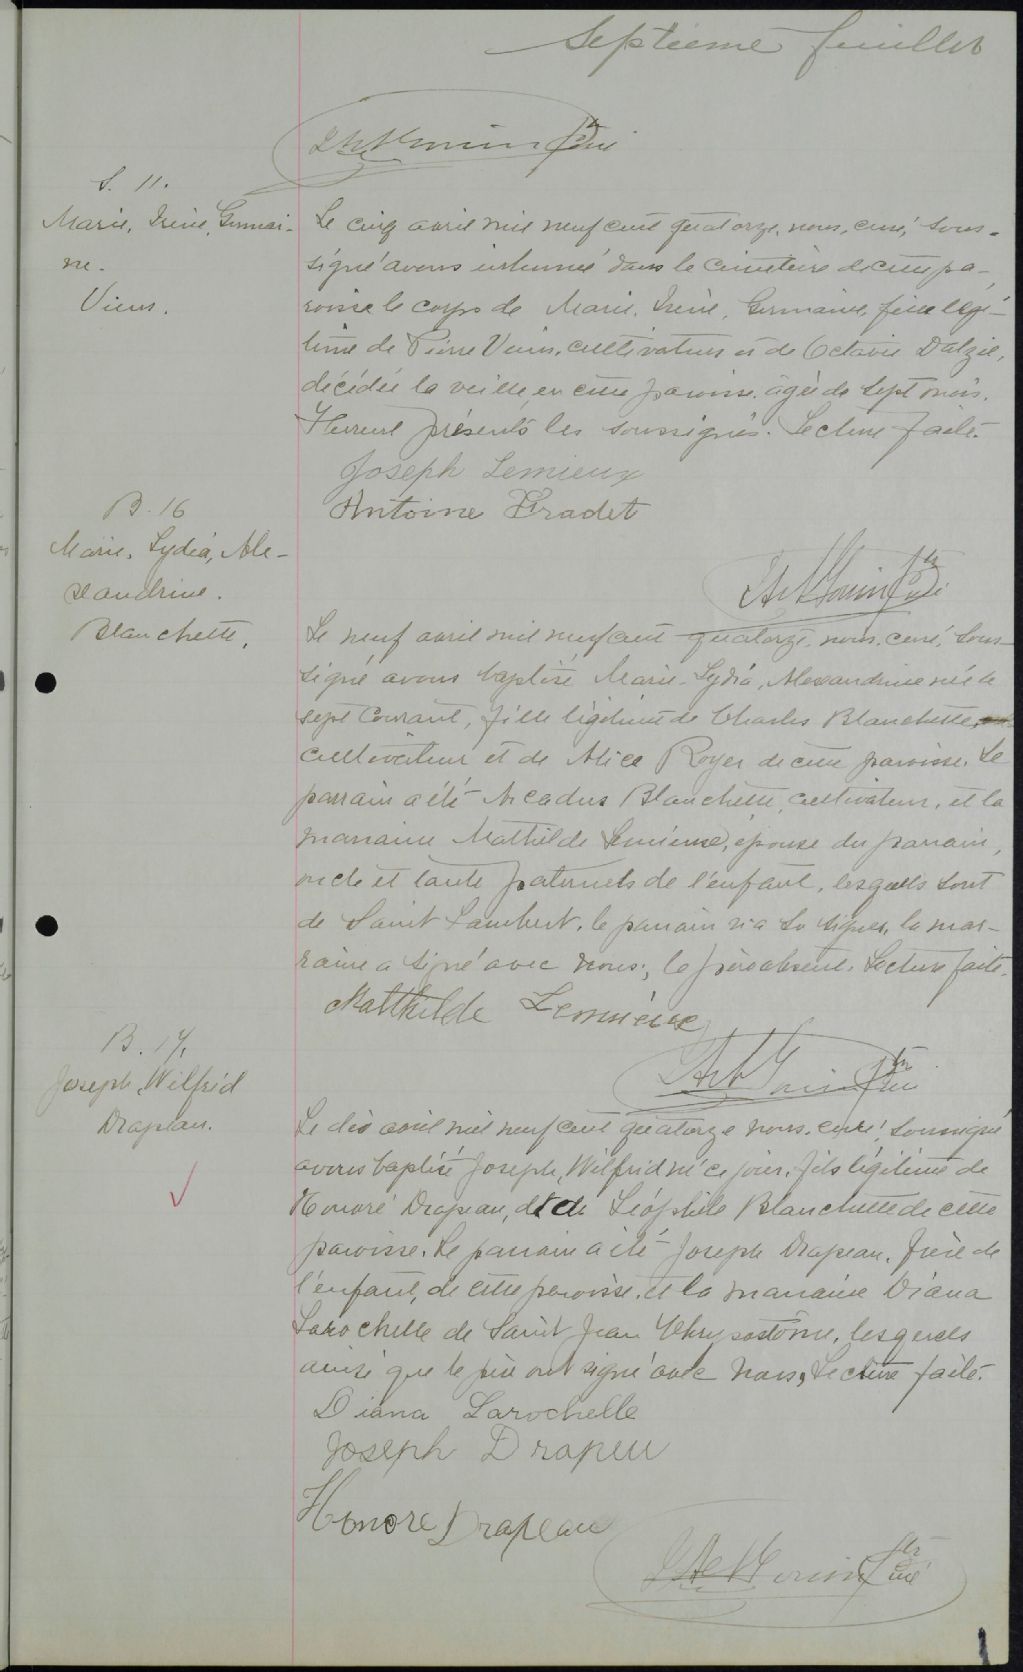 Septième feuillet
S. 11.
Marie, Irène, Germai-
ne.
Viens.
Le cinq avril mil neuf cent quatorze, nous, curé, sous-
signé avons inhumé dans le cimetière de cette pa-
roisse le corps de Marie, Irène, Germaine, fille légi-
time de Pierre Viens, cultivateur et de Octavie Dalzie,
décédée la veille, en cette paroisse, âgée de sept mois.
Furent présents les soussignés. Lecture faite.
Joseph Lemieux
Antoine Fradet
Ptre curé
B. 16
Marie, Lydia, Ale-
xandrine.
Blanchette.
Le neuf avril mil neuf cent quatorze, nous, curé, sous-
signé avons baptisé Marie, Lydia, Alexandrine née le
sept courant, fille légitime de Charles Blanchette,
cultivateur et de Alice Royer de cette paroisse. Le
parrain a été Arcadius Blanchette, cultivateur, et la
marraine Mathilde Lemieux, épouse du parrain,
oncle et tante paternels de l'enfant, lesquels sont
de Saint Lambert, le parrain n'a su signer, la mar-
raine a signé avec nous; le père absent. Lecture faite.
Matthilde Lemmieux
Ptre curé
B. 17.
Joseph, Wilfrid
Drapeau.
Le dix avril mil neuf cent quatorze nous, curé, soussigné
avons baptisé Joseph, Wilfrid né ce jour, fils légitime de
Honoré Drapeau, et de Léophile Blanchette de cette
paroisse. Le parrain a été Joseph Drapeau, frère de
l'enfant, de cette paroisse, et la marraine Diana
Larochelle de Saint Jean Chrysostôme, lesquels
ainsi que le père ont signé avec nous, Lecture faite.
Diana Larochelle
Joseph Drapeu
Honore Drapeau
Ptre curé